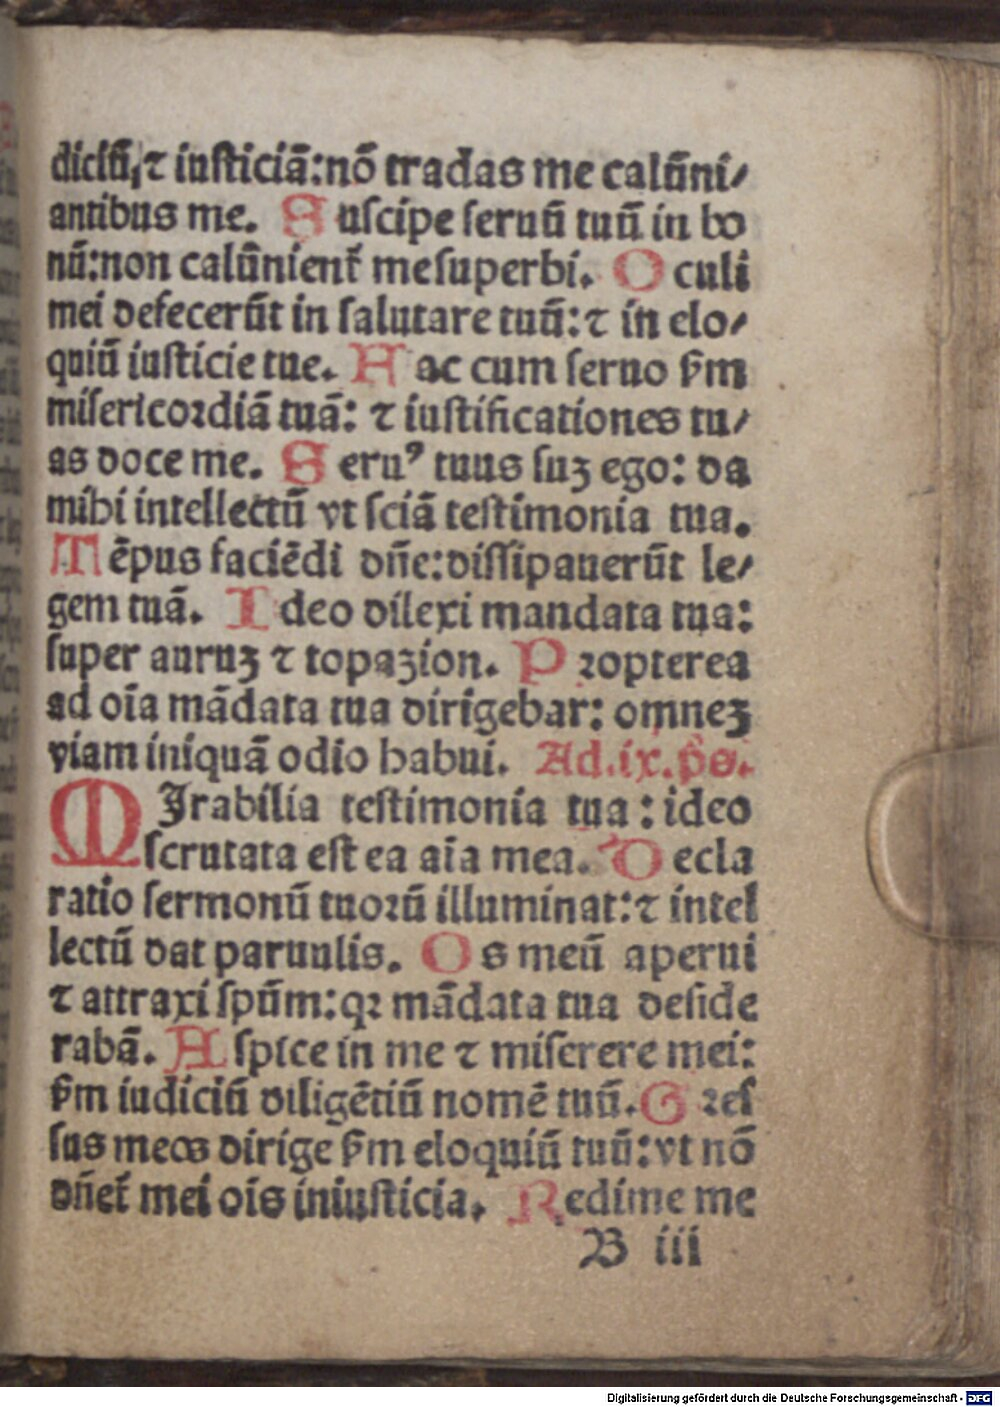 diciū, ⁊ iusticiā: nō tradas me calūni/
antibus me. Suscipe seruū tuū in bo
nū: non calūnient᷑ me superbi. Oculi
mei defecerūt in salutare tuū: ⁊ in elo/
quiū iusticie tue. Fac cum seruo ẜm
misericordiā tuā: ⁊ iustificationes tu/
as doce me. Seruꝰ tuus suꝫ ego: da
mihi intellectū vt sciā testimonia tua.
Tēpus faciēdi dn̄e: dissipauerūt le/
gem tuā. Ideo dilexi mandata tua:
super auruꝫ ⁊ topazion. Propterea
ad oīa mādata tua dirigebar: omneꝫ
viam iniquā odio habui. Ad .ix. p̄s.
MIrabilia testimonia tua: ideo
scrutata est ea aīa mea. Decla
ratio sermonū tuoꝛū illuminat: ⁊ intel
lectū dat paruulis. Os meū aperui
⁊ attraxi spūm: qꝛ mādata tua deside
rabā. Aspice in me ⁊ miserere mei:
ẜm iudiciū diligētiū nomē tuū. Gres
sus meos dirige ẜm eloquiū tuū: vt nō
dn̄et᷑ mei oīs iniusticia. Redime me
B iii
Digitalisierung gefördert durch die Deutsche Forschungsgemeinschaft - DFG